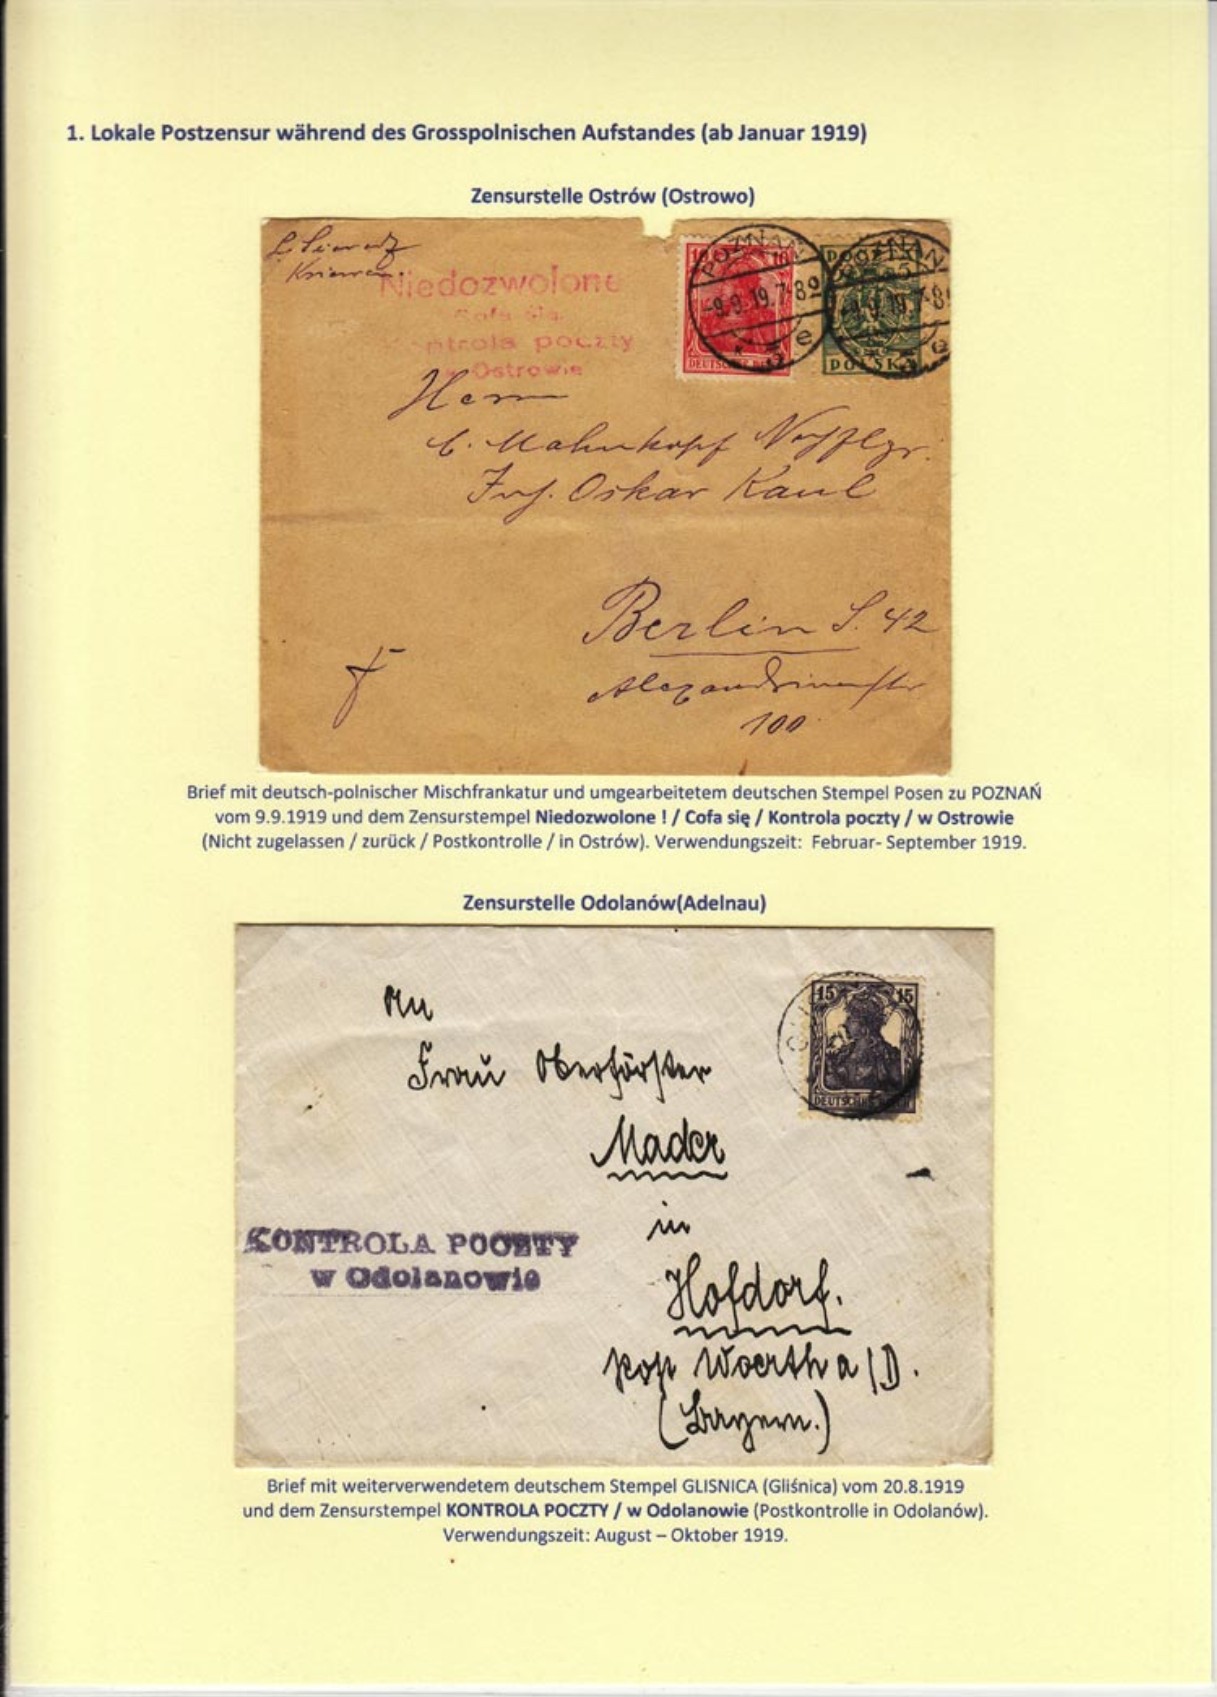 1. Lokale Postzensur während des Grosspolnischen Aufstandes (ab Januar 1919)
Zensurstelle Ostrów (Ostrowo)
Niedozwolone
Cofa się
Kontrola poczty
w Ostrowie
10 10
DEUTSCHES
POZNAŃ
-9.9.19.7-8
e
POCZTA
5
POLSKA
POZNAŃ
-9.9.19.7-8
e
Herrn
C. Mahnkopf Nachflgr.
Inh. Oskar Kaul
Berlin S. 42
Alexandrinenstr
100
Brief mit deutsch-polnischer Mischfrankatur und umgearbeitetem deutschen Stempel Posen zu POZNAŃ
vom 9.9.1919 und dem Zensurstempel Niedozwolone ! / Cofa się / Kontrola poczty / w Ostrowie
(Nicht zugelassen / zurück / Postkontrolle / in Ostrów). Verwendungszeit:  Februar- September 1919.
Zensurstelle Odolanów(Adelnau)
15 15
DEUTSCHES REICH
An
Frau Oberförster
Mader
in
Hofdorf.
Post Woerth a/D.
(Bayern.)
KONTROLA POCZTY
w Odolanowie
Brief mit weiterverwendetem deutschem Stempel GLISNICA (Gliśnica) vom 20.8.1919
und dem Zensurstempel KONTROLA POCZTY / w Odolanowie (Postkontrolle in Odolanów).
Verwendungszeit: August – Oktober 1919.